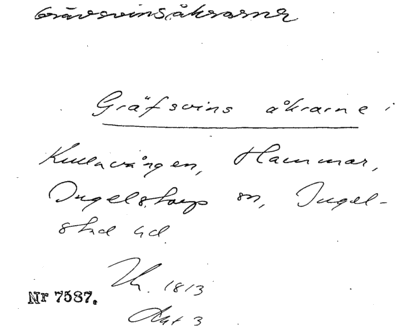 Grävsvinsåkrarne
Gräfsvins åkrarne i
Kullavången, Hammar,
Ingelstorps sn, Ingel-
stad hd.
1813
Nr 7587.
Akt 3